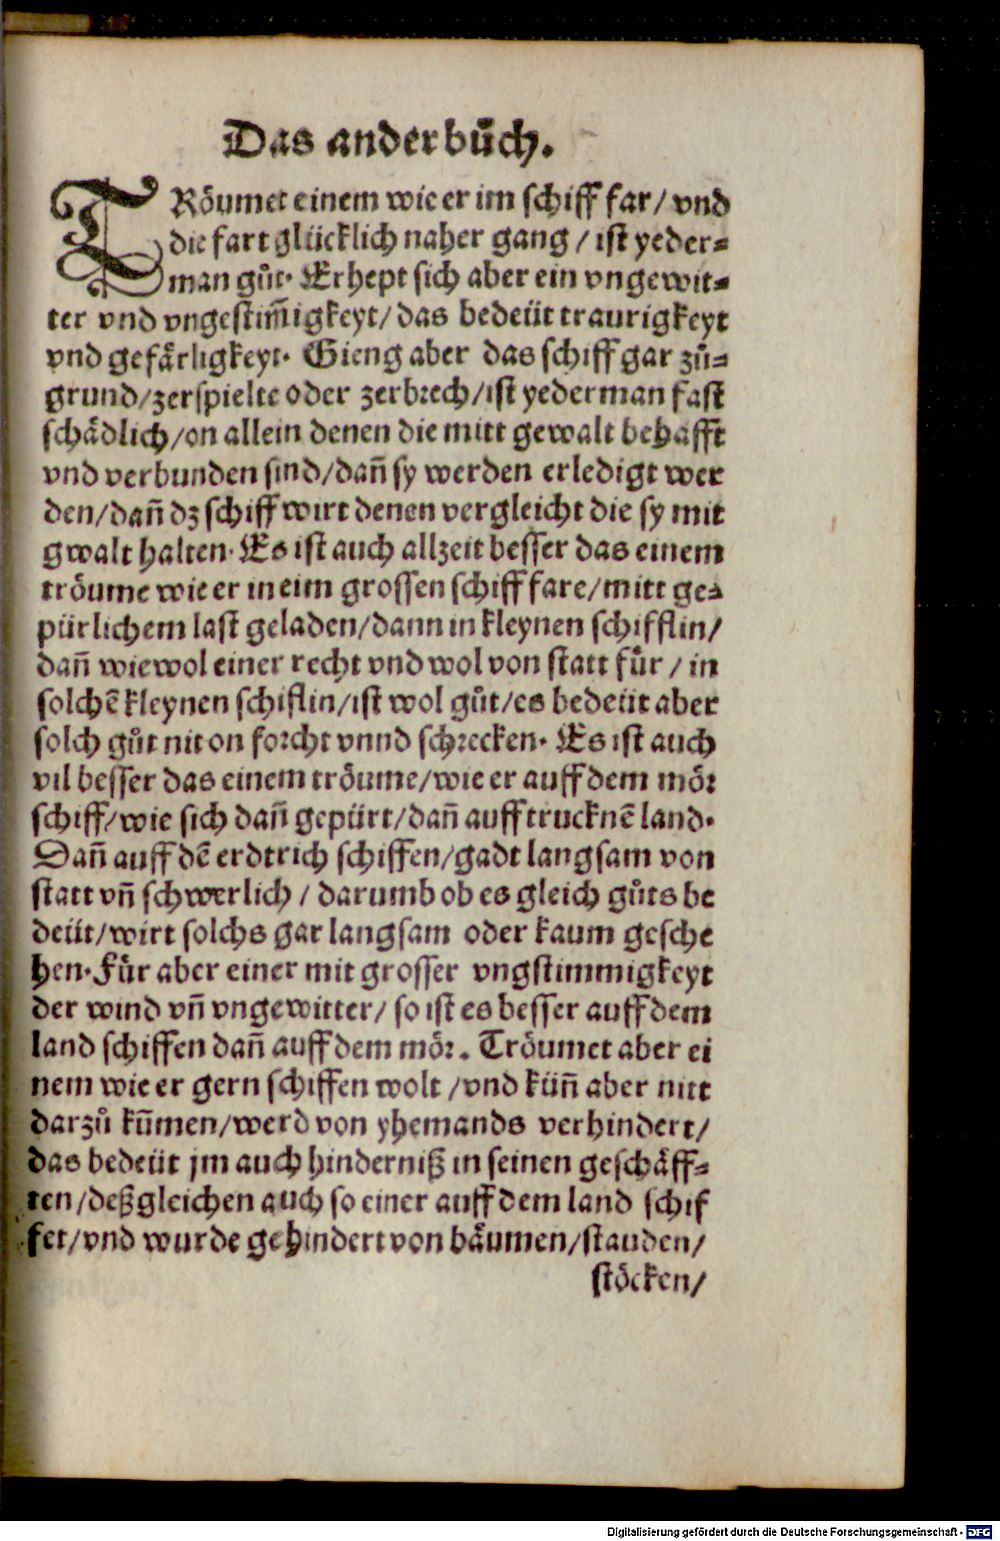 Das ander bůch.
TRöumet einem wie er im schiff far / vnd
die fart glücklich naher gang / ist yeder-
man gůt. Erhept sich aber ein vngewit-
ter vnd vngestim̃igkeyt / das bedeüt traurigkeyt
vnd gefärligkeyt. Gieng aber das schiff gar zů-
grund / zerspielte oder zerbrech / ist yederman fast
schädlich / on allein denen die mitt gewalt behafft
vnd verbunden sind / dañ sy werden erledigt wer
den / dañ dz schiff wirt denen vergleicht die sy mit
gwalt halten. Es ist auch allzeit besser das einem
tröume wie er in eim grossen schiff fare / mitt ge-
pürlichem last geladen / dann in kleynen schifflin /
dañ wiewol einer recht vnd wol von statt fůr / in
solchē kleynen schiflin / ist wol gůt / es bedeüt aber
solch gůt nit on forcht vnnd schrecken. Es ist auch
vil besser das einem tröume / wie er auff dem mör
schiff / wie sich dañ gepürt / dañ auff trucknē land.
Dañ auff dē erdtrich schiffen / gadt langsam von
statt vñ schwerlich / darumb ob es gleich gůts be
deüt / wirt solchs gar langsam oder kaum gesche
hen. Fůr aber einer mit grosser vngstimmigkeyt
der wind vñ vngewitter / so ist es besser auff dem
land schiffen dañ auff dem mör. Tröumet aber ei
nem wie er gern schiffen wolt / vnd küñ aber nitt
darzů kum̃en / werd von yhemands verhindert /
das bedeüt jm auch hinderniß in seinen geschäff-
ten / deßgleichen auch so einer auff dem land schif
fet / vnd wurde gehindert von bäumen / stauden /
stöcken /
Digitalisierung gefördert durch die Deutsche Forschungsgemeinschaft - DFG